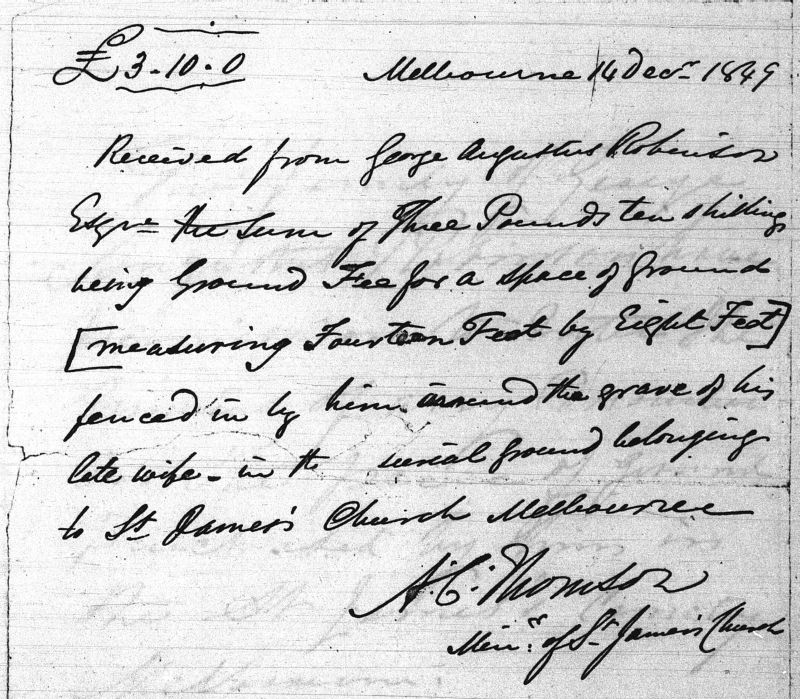 £3-10.0
Melbourne 14 Decr 1849
Received from George Augustus Robinson
Esqre the Sum of Three Pounds ten shillings
being Ground Fee for a space of ground
[measuring Fourteen Feet by Eight Feet]
fenced in by him around the grave of his
late wife - in the burial ground belonging
to St James's Church Melbourne
A. C. Thomson
Minr. of St James's Church